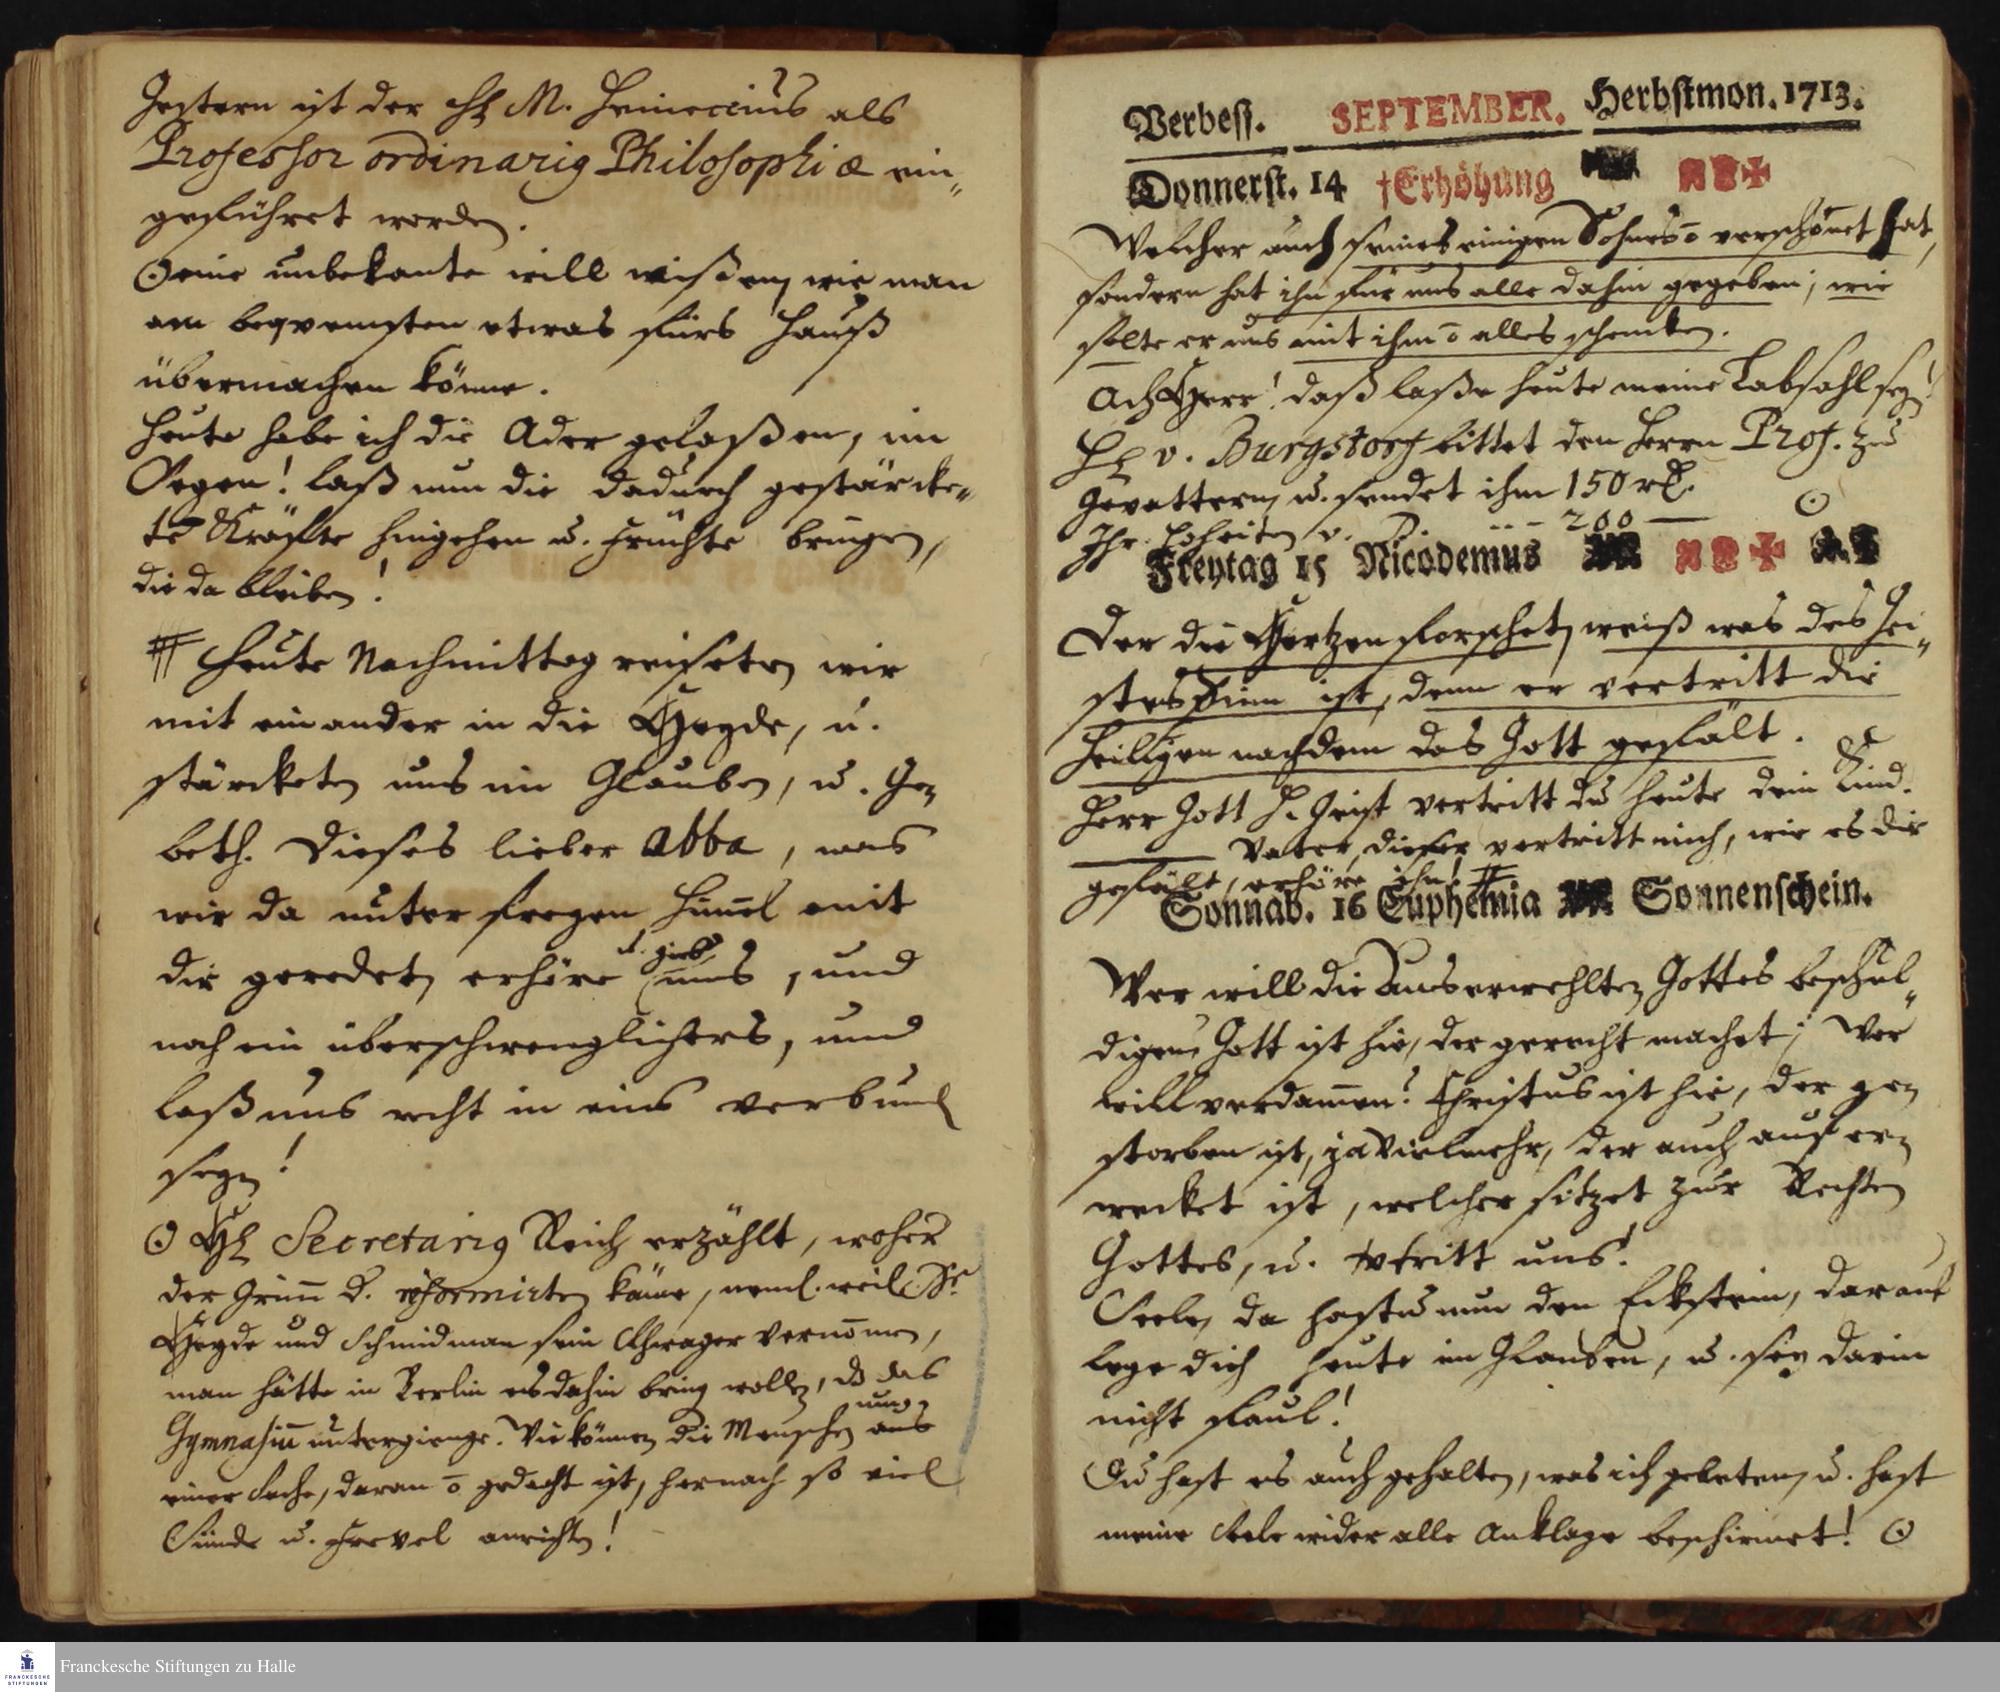 Gestern ist der H. M. Heineccius als
Professor ordinarius Philosophiæ ein-
geführet worden.
⊙ eine unbekante will wißen, wie man
am beqvemsten etwas fürs Hauß
übermachen könne.
Heute habe ich die Ader gelaßen, im
Segen! laß nun die dadurch gestärcke-
te Kräfte hingehen u. Früchte bringen,
die da bleiben!
# Heute Nachmittag reiseten wir
mit einander in die Heyde, u.
stärcketen uns im Glauben, u. Ge-
beth. Dieses lieber Abba, was
wir da unter freyen Him̄el mit
dir geredet, erhöre u. gieb uns, und
noch ein überschwenglichers, und
laß uns recht in eins verbund
seyn!
⊙ H. Secretarius Reich erzählt, woher
der Grim̄ d. reformirten käme, neml. weil
Heyde und Schmidman sein Schwager vernom̄en,
man hätte in Berlin es dahin bring wollen, das
Gymnasium untergienge. Wie können die Menschen aus
nur
einer Sache, daran ō gedacht ist, hernach so viel
Sünde u. Frevel anrichten!
Verbess. SEPTEMBER. Herbstmon. 1713.
Donnerst. 14 †Erhöhung
Welcher auch seines einigen Sohnes ō verschonet hat,
sondern hat ihn für uns alle dahin gegeben; wie
solte er uns mit ihm ō alles schencken.
Ach Herr! daß laße heute meine Labsahl seyn!
H. v. Burgstorf bittet den Herrn Prof. zu
Gevattern, u. sendet ihm 150 rl.
Ihr. Hoheiten v. P. --- 200 — ⊙
Freytag 15 Nicodemus
Der die Hertzen forschet, weiß was des Gei-
stes Sinn ist, denn er vertritt die
Heiligen nachdem das Gott gefält.
Herr Gott H. Geist vertritt du heute dein Kind.
Vater, dieser vertritt mich, wie es dir
gefält, erhöre ihn! #
Sonnab. 16 Euphemia Sonnenschein.
Wer will die Auserwehlten Gottes beschul-
digen, Gott ist hie, der gerecht machet; Wer
will verdam̄en? Christus ist hie, der ge-
storben ist, ja vielmehr, der auch auferwe-
wecket ist, welcher sitzet zur Rechten
Gottes, u. vertritt uns!
Seele, da hastu nun den Eckstein, darauf
lege dich heute im Glauben, u. sey darin
nicht faul!
Du hast es auch gehalten, was ich gebeten, u. hast
meine Seele wider alle Anklage beschirmet! ⊙
Franckesche Stiftungen zu Halle
FRANCKESCHE
STIFTUNGEN